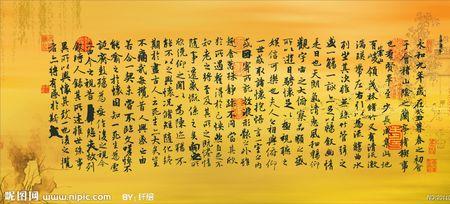 永和九年歲在癸丑暮春之初會
于會稽山陰之蘭亭脩稧事
也羣賢畢至少長咸集此地
有崇山峻領茂林脩竹又有清流激
湍暎帶左右引以為流觴曲水
列坐其次雖無絲竹管弦之
盛一觴一詠亦足以暢敘幽情
是日也天朗氣清惠風和暢仰
觀宇宙之大俯察品類之盛
所以遊目騁懷足以極視聽之
娛信可樂也夫人之相與俯仰
一世或取諸懷抱悟言一室之內
或因寄所託放浪形骸之外雖
趣舍萬殊靜躁不同當其欣
於所遇暫得於己快然自足不
知老之將至及其所之既惓情
隨事遷感慨係之矣向之所
欣俛仰之間以為陳迹猶不
能不以之興懷況脩短隨化終
期於盡古人云死生亦大矣豈
不痛哉每攬昔人興感之由
若合一契未嘗不臨文嗟悼不
能喻之於懷固知一死生為虛
誕齊彭殤為妄作後之視今
亦由今之視昔悲夫故列
敘時人錄其所述雖世殊事
異所以興懷其致一也後之攬
者亦將有感於斯文
昵图网
www.nipic.com
BY: